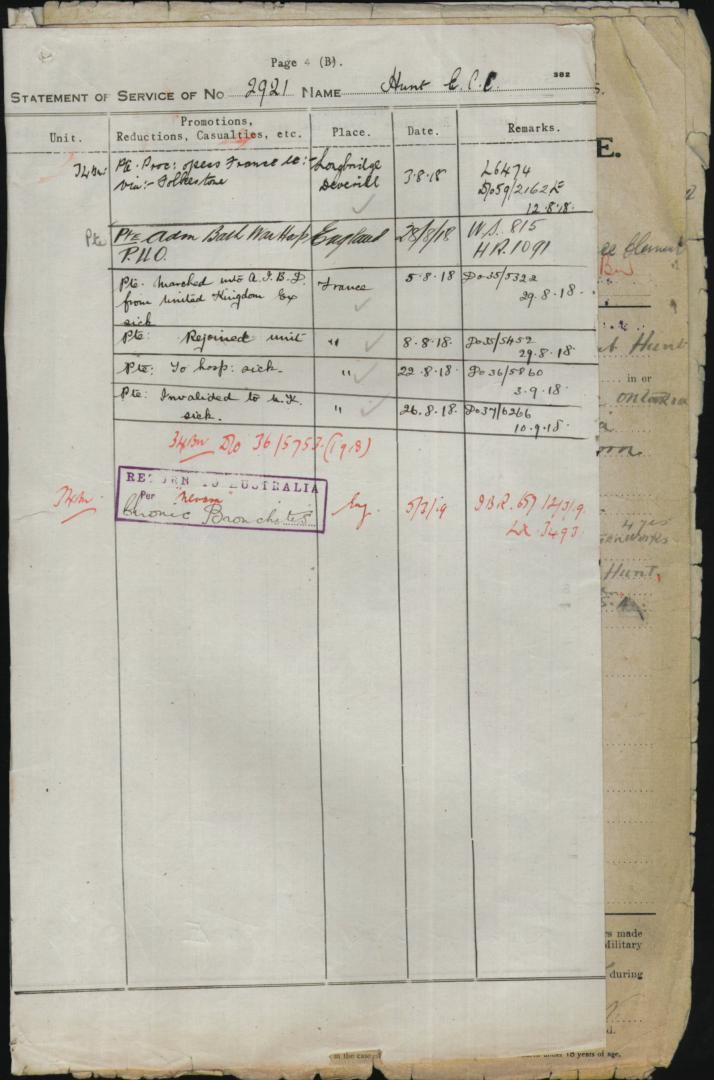 Page 4 (B).
382
STATEMENT OF SERVICE OF No 2921 NAME Hunt E. C. C.
Unit. Promotions, Reductions, Casualties, etc. Place. Date. Remarks.
34Bn: Pte. Proc: opeas France &c:- Longbridge 3.8.18 L6474
via:- Folkestone Deverill Do59/2162E
12.8.18.
Pte Pte Adm Bath War Hosp England 28/8/18 W.S. 815
P.U.O. H.R. 1091
Pte. Marched into A.I.B.D. France 5.8.18 Do35/5322
from United Kingdom Ex 29.8.18.
sick
Pte: Rejoined unit " 8.8.18. Do35/5452
29.8.18.
Pte: To hosp: sick. " 22.8.18. Do36/5860
3.9.18.
Pte: Invalided to U.K. " 26.8.18. Do37/6266
sick. 10.9.18.
34Bn Do 36/5753. (1918)
34Bn. RETURN TO AUSTRALIA
Per "Nevasa" Eng. 5/3/19 I.B.R. 657 12/3/19.
Chronic Bronchitis 3493
E.
Clement
Hunt
in or
4 yrs
Hunt,
made
Military
during
in the case
under 18 years of age,